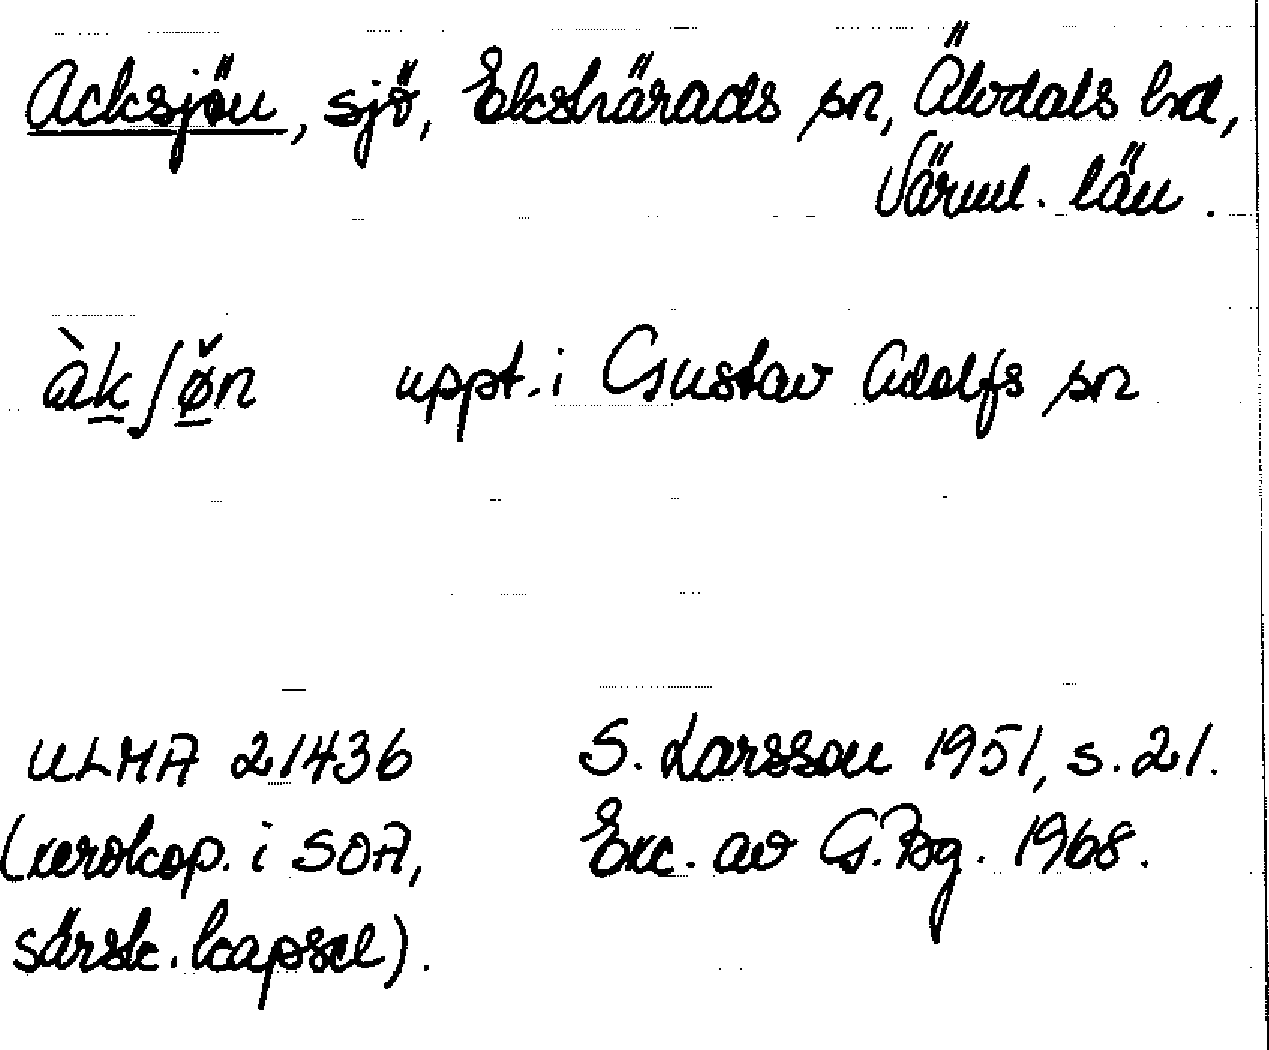 Acksjön, sjö, Ekshärads sn, Älvdals hd,
Värml. län.
àkʃø̌n uppt. i Gustav Adolfs sn
ULMA 21436 S. Larsson 1951, s. 21.
(xerokop. i SOA, Exc. av G. Bg. 1968.
särsk. kapsel).